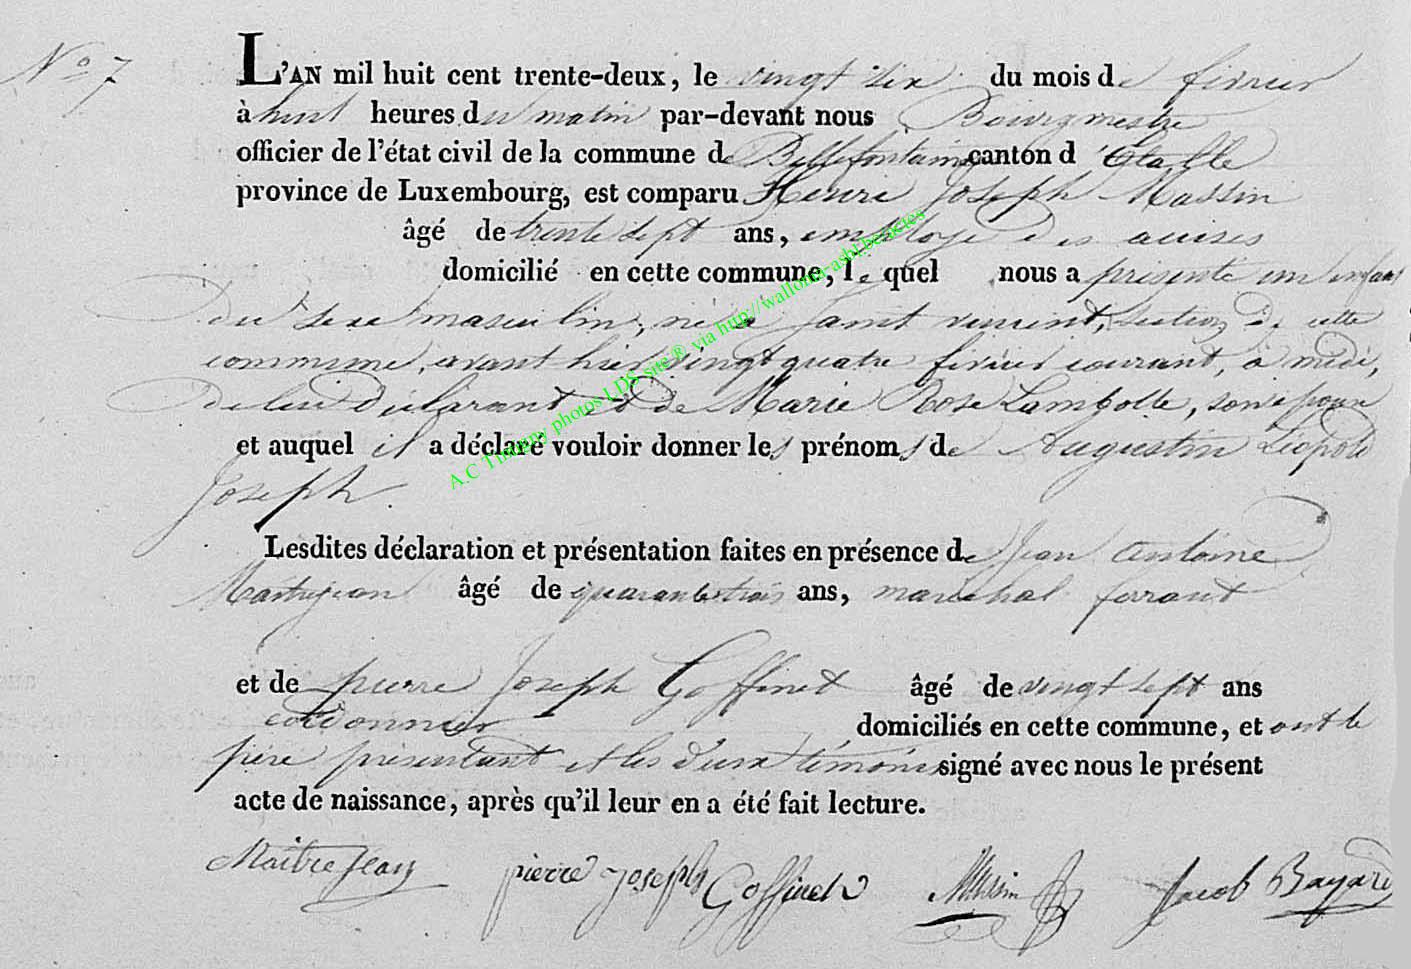 N.º 7
L'AN mil huit cent trente-deux, le vingt six du mois de fevrier
à huit heures du matin par-devant nous Bourgmestre
officier de l'état civil de la commune de Bellefontaine canton d'Etalle
province de Luxembourg, est comparu Henri Joseph Massin
âgé de trente sept ans, employé des accises
domicilié en cette commune, lequel nous a présenté un enfant
du sexe masculin, né à Saint vincent, section de cette
commune, avant hier vingt quatre février courant, à midi,
de lui déclarant et de Marie Rose son épouse
et auquel il a déclaré vouloir donner les prénoms de Augustin Léopold
Joseph.
Lesdites déclaration et présentation faites en présence de Jean Antoine
âgé de quarante trois ans, maréchal ferrant
et de pierre Joseph Goffinet âgé de vingt sept ans
cordonnier domiciliés en cette commune, et ont le
père présentant et les deux témoins signé avec nous le présent
acte de naissance, après qu'il leur en a été fait lecture.
Maitrejean pierre joseph Goffinet Massin Jacob Bayard
A.C Tintigny photos LDS site ® via http://wallonia-asbl.be/actes